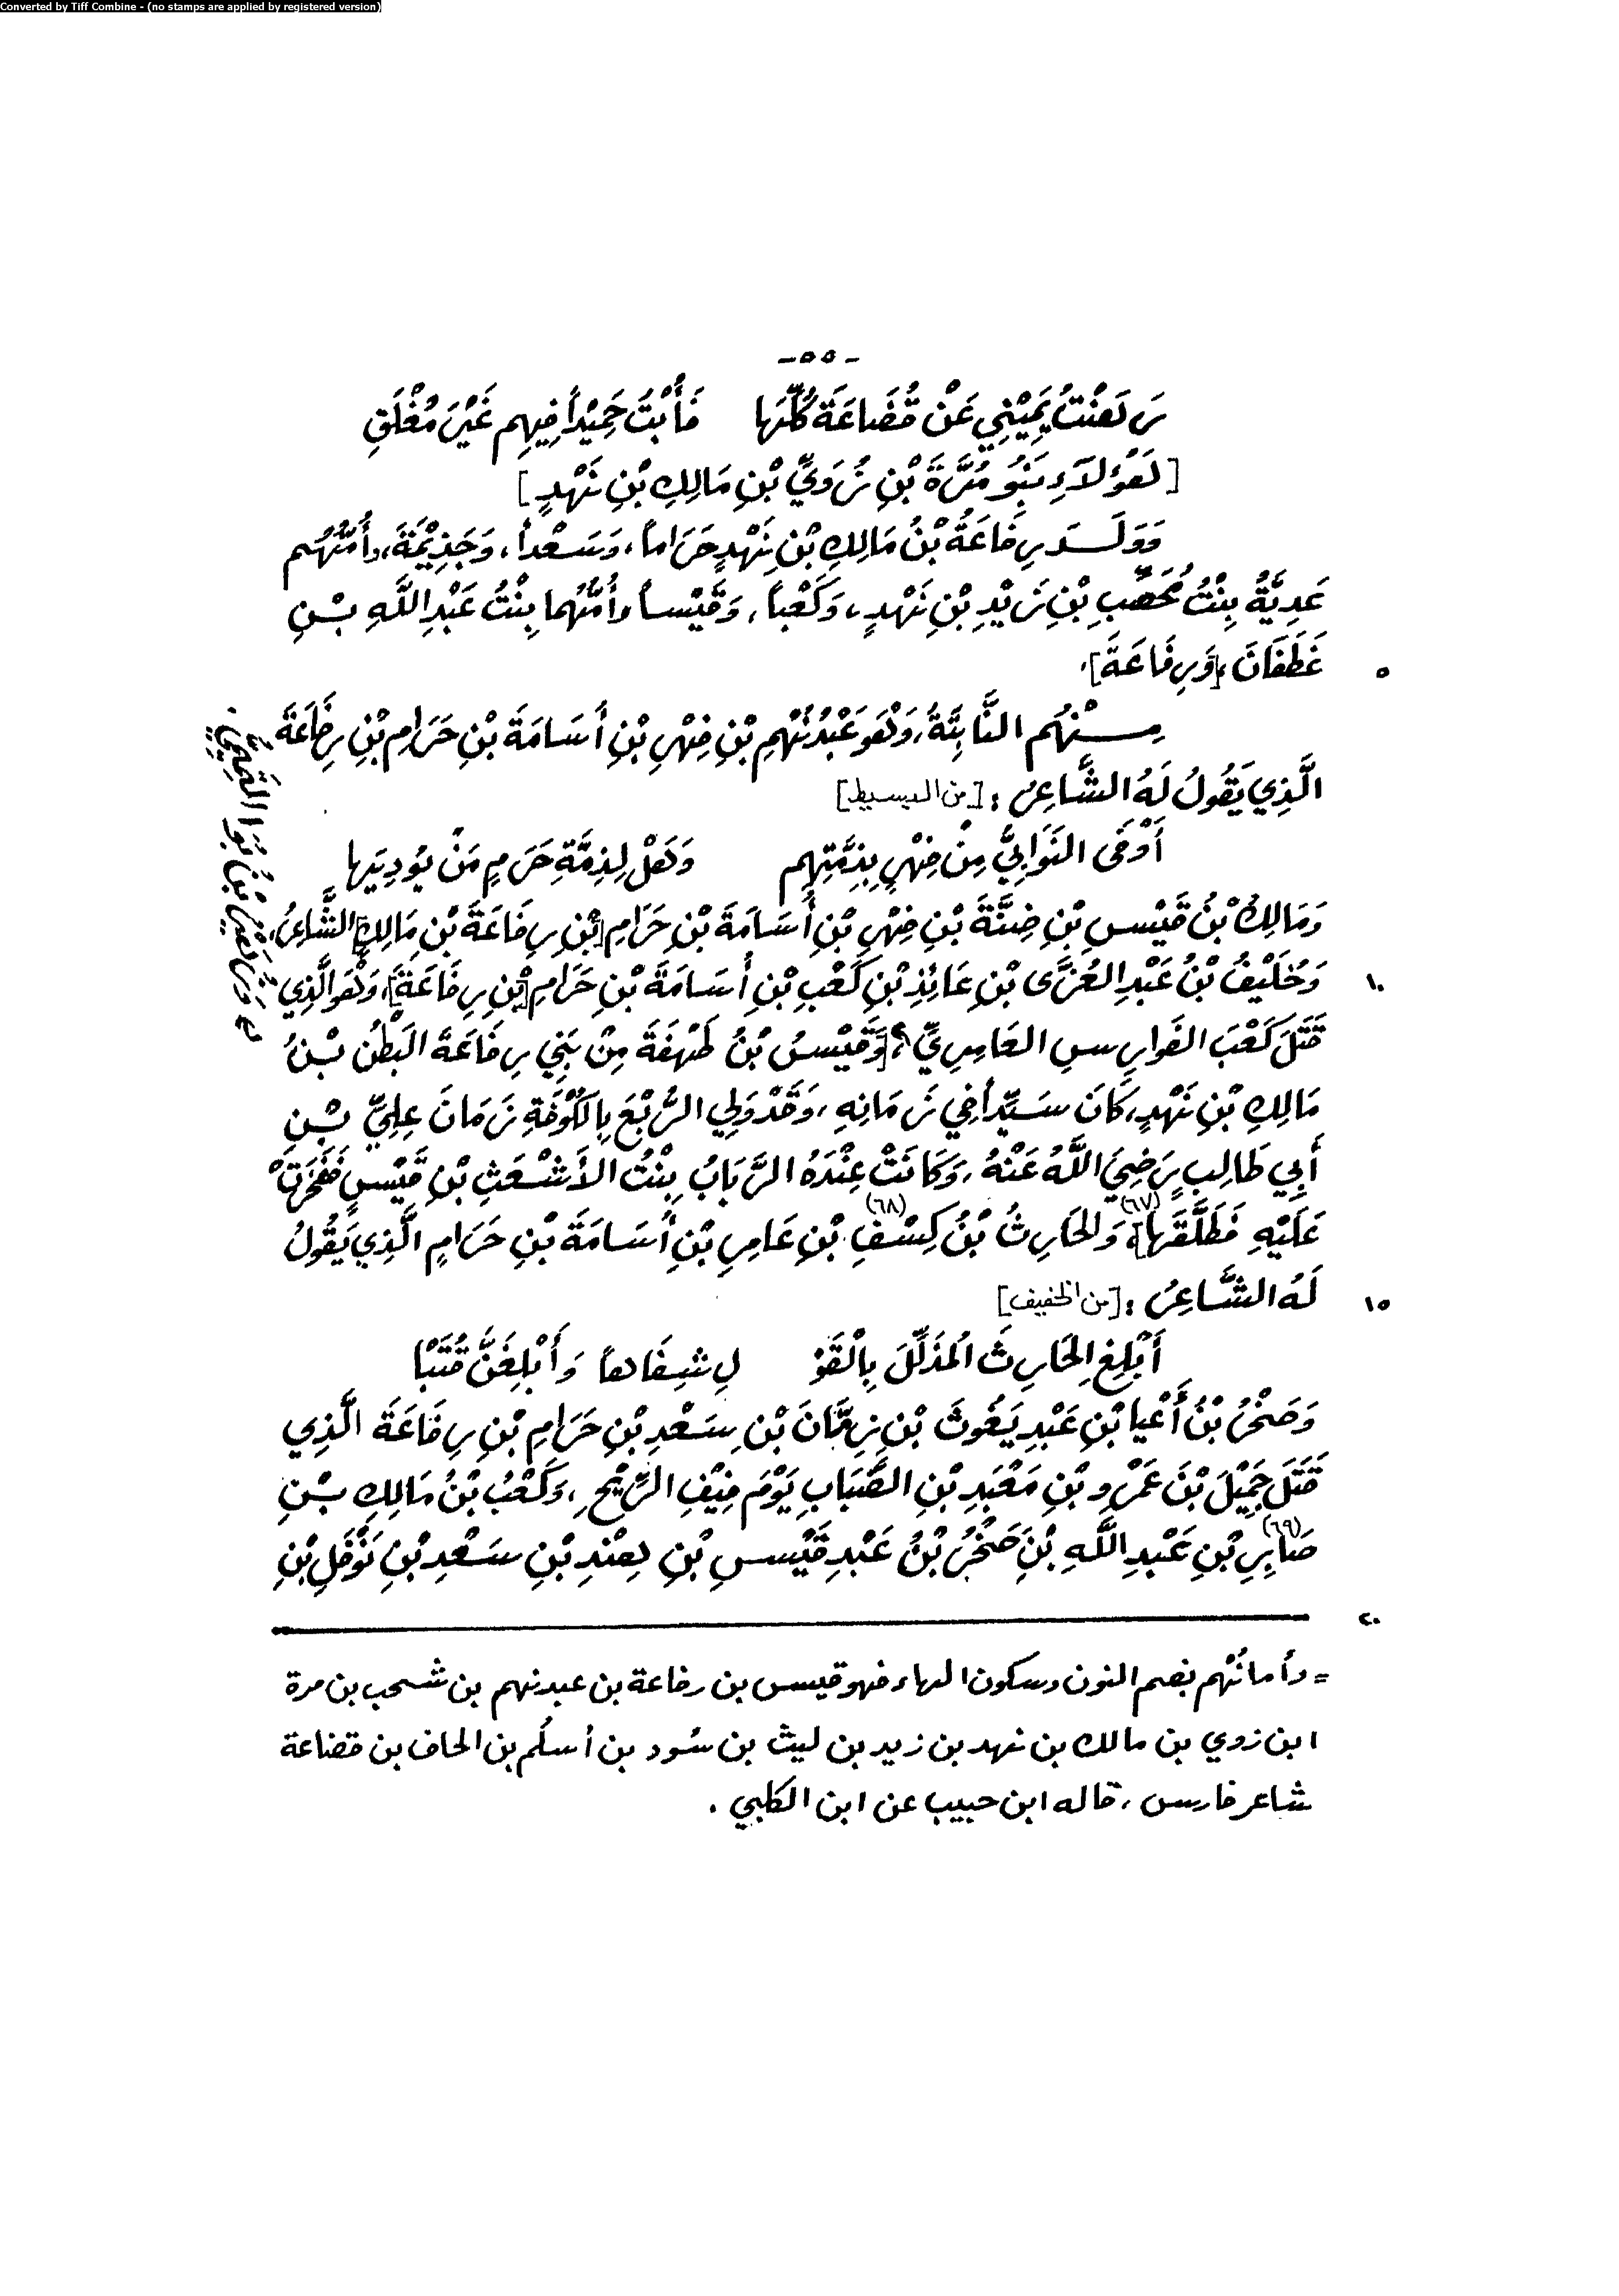 Converted by Tiff Combine - (no stamps are applied by registered version)
-٥٥-
رَهَنْتُ يَمِيْنِي عَنْ قُضَاعَةَ كُلِّهَا فَأُبْتُ حَمِيْداً فِيهِم غَيْرَ مُغْلَقِ
[هَؤُلَاءِ بَنُو مُرَّةَ بْنِ زُوَيِّ بْنِ مَالِكِ بْنِ نَهْدٍ]
وَوَلَــدَ رِفَاعَةُ بْنُ مَالِكِ بْنِ نَهْدٍ حَرَاماً، وَسَعْداً، وَجَذِيْمَةَ، وأُمُّهُم
عَدِيَّةُ بِنْتُ مُحَصِّبِ بْنِ زَيْدِ بْنِ نَهْدٍ، وَكَعْباً، وَقَيْساً وأُمُّهُما بِنْتُ عَبْدِ اللَّهِ بْـنِ
غَطَفَانَ، [وَرِفَاعَةَ].
٥
مِـنْهُم النَّابِتَةُ، وَهْوَ عَبْدُ نُهْمِ بْنِ فِهْرِ بْنِ أُسَامَةَ بْنِ حَرَامِ بْنِ رِفَاعَةَ
الَّذِي يَقُولُ لَهُ الشَّاعِرُ: [من البسيط]
أَوْفَى النَوَابِيُّ مِنْ فِهْرٍ بِذِمَّتِهِم وَهَلْ لِذِمَّةِ حَرَمٍ مَنْ يُودِيَها
وَمَالِكُ بْنُ قَيْسِ بْنِ ضِنَّةَ بْنِ فِهْرِ بْنِ أُسَامَةَ بْنِ حَرَامِ [بْنِ رِفَاعَةَ بْنِ مَالِكِ] الشَّاعِرُ،
وَخُلَيْفُ بْنُ عَبْدِ العُزَّى بْنِ عَائِذِ بْنِ كَعْبِ بْنِ أُسَامَةَ بْنِ حَرَامِ [بْنِ رِفَاعَةَ]، وَهْوَ الَّذِي
١٠
قَتَلَ كَعْبَ الفَوارِسِ العَامِرِيَّ، [وَقَيْسُ بْنُ طَهْفَةَ مِنْ بَنِي رِفَاعَةَ البَطْنُ بْـنُ
مَالِكِ بْنِ نَهْدٍ، كَانَ سَيِّداً فِي زَمَانِهِ، وَقَدْ وَلِي الرُّبْعَ بِالكُوْفَةِ زَمَانَ عِلِيِّ بْـنِ
أَبِي طَالِبٍ رَضِيَ اللَّهُ عَنْهُ، وَكَانَتْ عِنْدَهُ الرَّبَابُ بِنْتُ الأَشْعَثِ بْنِ قَيْسٍ فَفَخَرَتْ
عَلَيْهِ فَطَلَّقَها] (٦٧)، وَالحَارِثُ بْنُ كِسْفِ (٦٨) بْنِ عَامِرِ بْنِ أُسَامَةَ بْنِ حَرَامٍ الَّذِي يَقُولُ
لَهُ الشَّاعِرُ: [من الخفيف]
١٥
أَبْلِغِ الحَارِثَ المُذَلَّلَ بِالْقَوْ لِ شِفَاهاً وَأَبْلِغَنَّ قُتَبْا
وَصَخْرُ بْنُ أَعْيا بْنِ عَبْدِ يَغُوثَ بْنِ زِمَّانَ بْنِ سَعْدِ بْنِ حَرَامِ بْنِ رِفَاعَةَ الَّذِي
قَتَلَ جَمِيْلَ بْنَ عَمْرِو بْنِ مَعْبَدِ بْنِ الضَّبَابِ يَوْمَ فِيْفِ الرِّيْحِ، وَكَعْبُ بْنُ مَالِكِ بْـنِ
صَابِرِ (٦٩) بْنِ عَبْدِ اللَّهِ بْنِ صَخْرُ بْنُ عَبْدِ قَيْسِ بْنِ هِنْدِ بْنِ سَعْدِ بْنِ نَوْفَلِ بْنِ
٢٠
= وأما نُهْم بضم النون وسكون الهاء فهو قيس بن رفاعة بن عبد نهم بن شحب بن مرة
ابن زوي بن مالك بن نهد بن زيد بن ليث بن سُود بن أسلُم بن الحاف بن قضاعة
شاعر فارس، قاله ابن حبيب عن ابن الكلبي.